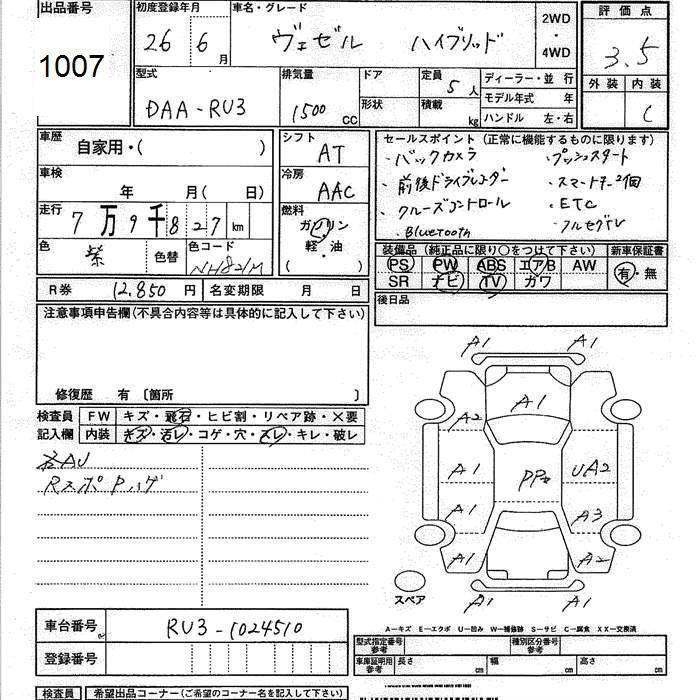 出品番号
1007
初度登録年月
26 6月
車名・グレード
ヴェゼル ハイブリッド
2WD
・
4WD
評価点
3.5
外装 内装
C
型式
DAA-RU3
排気量
1500 CC
ドア
形状
定員 5人
積載 kg
ディーラー・並行
モデル年式 年
ハンドル 左・右
車歴
自家用・( )
車検
年 月( 日)
走行
7万9千827km
色
紫
色替
色コード
NH821M
シフト
AT
冷房
AAC
燃料
ガソリン
・
軽・油
( )
セールスポイント (正常に機能するものに限ります)
・バックカメラ ・プッシュスタート
・前後ドライブレコーダー ・スマートキー2個
・クルーズコントロール ・ETC
・Bluetooth ・フルセグTV
装備品 (純正品に限り○をつけて下さい)
PS PW ABS エアB AW
SR ナビ TV カワ
新車保証書
有・無
後日品
R券 12,850 円
名変期限 月 日
注意事項申告欄(不具合内容等は具体的に記入して下さい)
修復歴 有 〔箇所 〕
検査員 FW キズ・飛石・ヒビ割・リペア跡・×要
記入欄 内装 キズ・汚レ・コゲ・穴・スレ・キレ・破レ
RスポPハゲ
A1 A1
A1
A2
A1 PP UA2
A1 A3
A1 A2
A1 A1
スペア
A−キズ E−エクボ U−凹み W−補修跡 S−サビ C−腐食 XX−交換済
車台番号 RU3-1024510
登録番号
型式指定番号 参考
種別区分番号 参考
車庫証明用 参考 長さ cm 幅 cm 高さ cm
検査員 希望出品コーナー(ご希望のコーナー名を記入下さい)